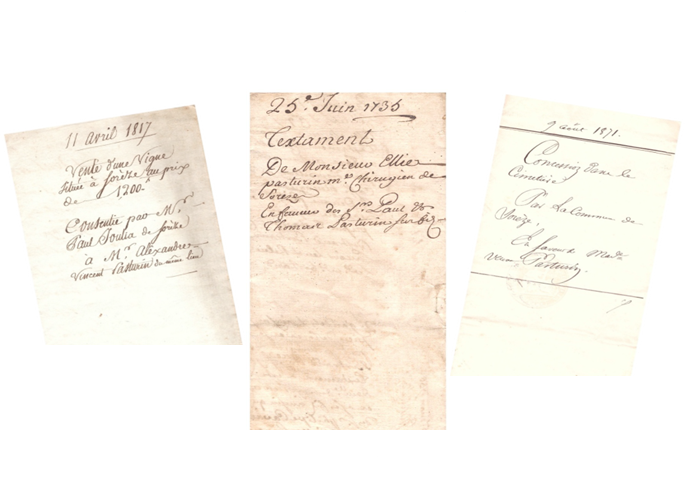 11 avril 1817
Vente d'une Vigne
Située à Sorèze au prix
de 1200-
Consentie par Mr.
Paul Soulia de Sorèze
à Mr. Alexandre
Vincent Pasturin du même lieu
25e. Juin 1735
Textament
De Monsieur Ellie
pasturin me. Chirugien de
Sorèze
En faveur des Srs. Paul &
Thomas Pasturin
9 août 1871.
Concession dans le
Cimetière
Par La Commune de
Sorèze,
En faveur de Made
veuve Pasturin